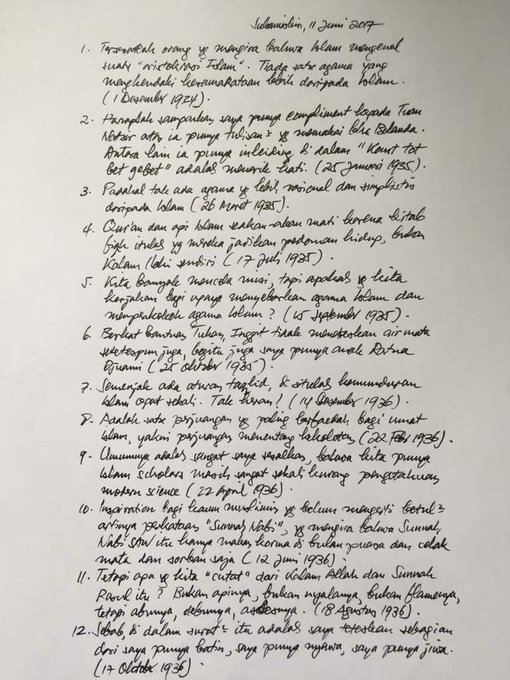 Sukamiskin, 11 Juni 2017
1. Tersesatlah orang yg mengira bahwa Islam mengenal
suatu "aristokrasi Islam". Tiada satu agama yang
menghendaki kesamarataan lebih daripada Islam.
(1 Desember 1924).
2. Haraplah sampaikan saya punya compliment kepada Tuan
Natsir atas ia punya tulisan2 yg memakai bhs Belanda.
Antara lain ia punya inleiding di dalam "Komt tot
het gebed" adalah menarik hati. (25 Januari 1935).
3. Padahal tak ada agama yg lebih rasional dan simplistis
daripada Islam (26 Maret 1935).
4. Qur'an dan api Islam seakan-akan mati karena kitab
fiqh itulah yg mereka jadikan pedoman hidup, bukan
Kalam Ilahi sendiri (17 Juli 1935).
5. Kita banyak mencela misi, tapi apakah yg kita
kerjakan bagi upaya menyebarkan agama Islam dan
memperkokoh agama Islam? (15 September 1935).
6. Berkat bantuan Tuhan, Inggit tidak meneteskan air mata
setetespun juga, begitu juga saya punya anak Ratna
Djuami (25 Oktober 1935)
7. Semenjak ada aturan taqlid, di situlah kemunduran
Islam cepat sekali. Tak heran! (14 Desember 1936).
8. Adalah satu perjuangan yg paling berfaedah bagi umat
Islam, yakni perjuangan menentang kekolotan (22 Feb 1936).
9. Umumnya adalah sangat saya sesalkan, bahwa kita punya
Islam scholars masih sangat sekali kurang pengetahuan
modern science (22 April 1936).
10. Inspiration bagi kaum muslimin yg belum mengerti betul2
artinya perkataan "Sunnah Nabi", yg mengira bahwa Sunnah
Nabi SAW itu hanya makan korma di bulan puasa dan celak
mata dan sorban saja (12 Juni 1936).
11. Tetapi apa yg kita "cutat" dari Kalam Allah dan Sunnah
Rasul itu? Bukan apinya, bukan nyalanya, bukan flamenya,
tetapi abunya, debunya, asbesnya. (18 Agustus 1936).
12. Sebab, di dalam surat2 itu adalah saya teteskan sebagian
dari saya punya batin, saya punya nyawa, saya punya jiwa.
(17 Oktober 1936).